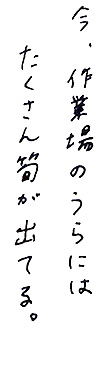 今、作業場のうらには
たくさん筍が出てる。